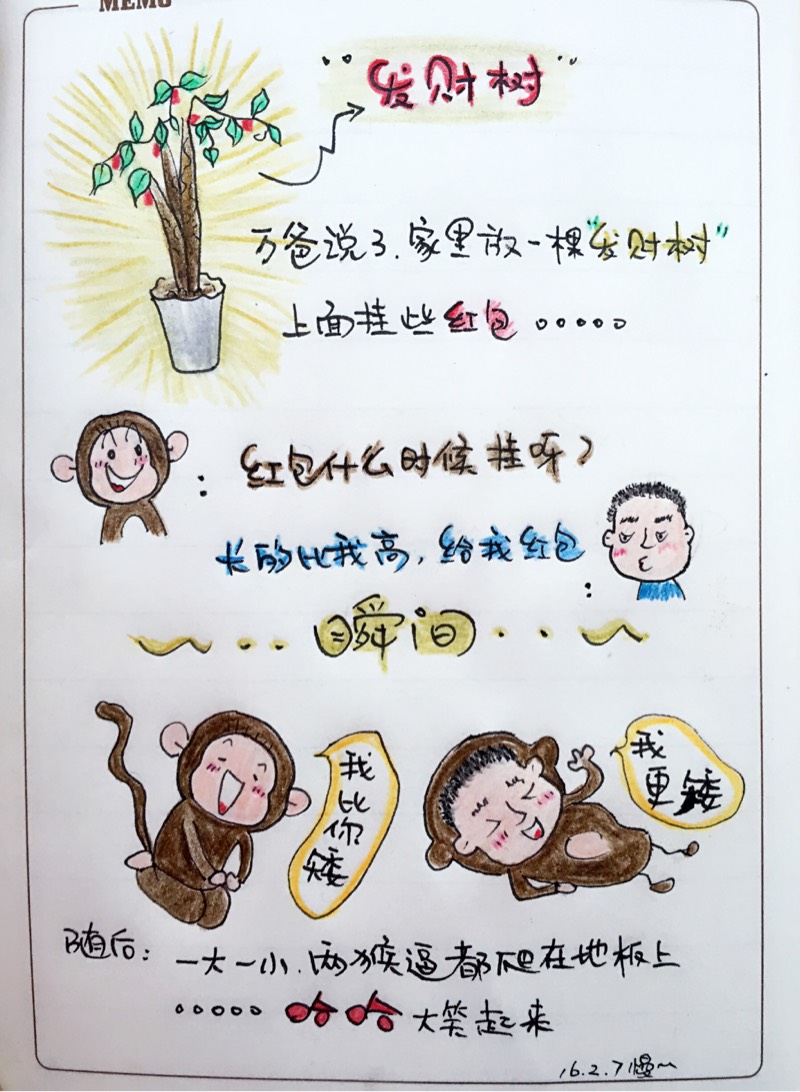 MEMO
"发财树"
万爸说了.家里放一棵"发财树"
上面挂些红包。。。。。
：红包什么时候挂呀？
长的比我高，给我红包：
～··瞬间··～
我比你矮
我更矮
随后：一大一小.两猴逼都爬在地板上
。。。。。哈哈大笑起来
16.2.7慢~